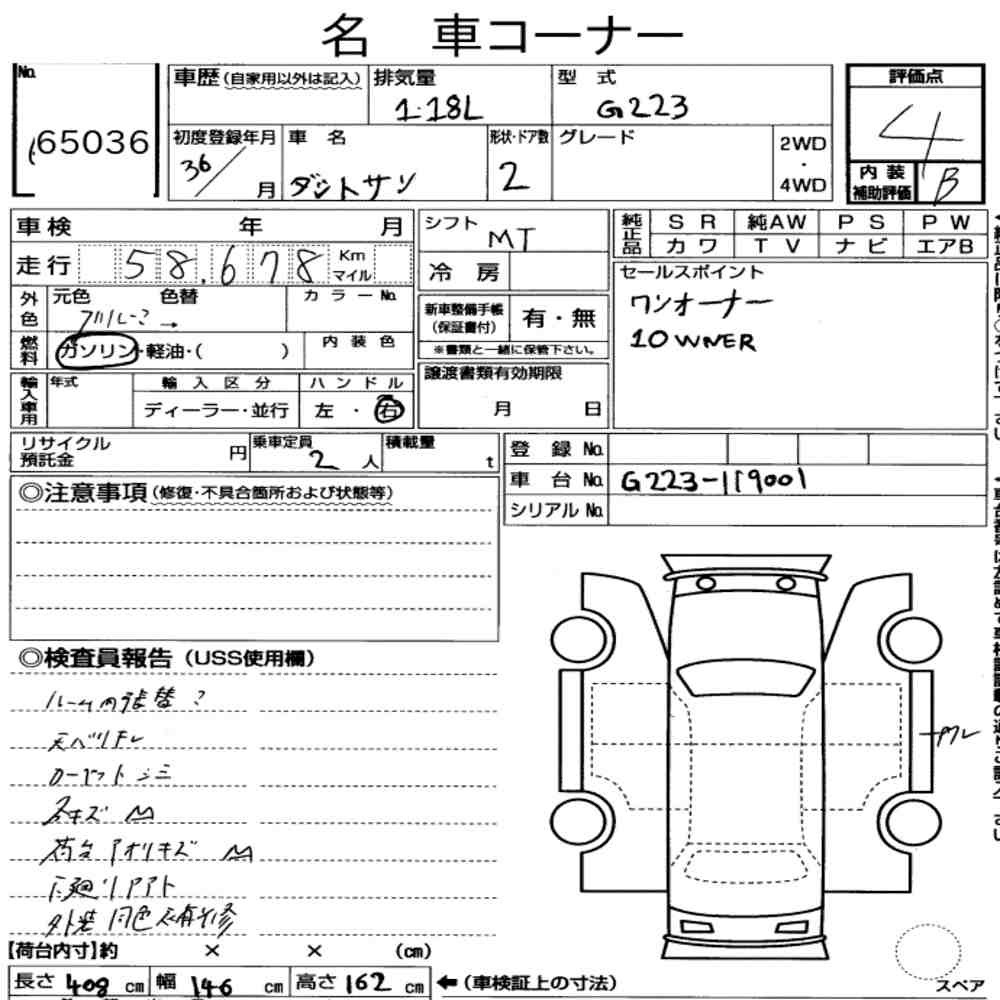 名 車コーナー
No. 65036
車歴(自家用以外は記入) 排気量 1.18L 型 式 G223
評価点 4
初度登録年月 36/ 月 車 名 ダットサン 形状・ドア数 2 グレード 2WD・4WD
内 装 補助評価 B
車検 年 月 シフト MT
純正品 S R 純AW P S P W
カ ワ T V ナ ビ エアB
走行 58,678 Km マイル 冷 房
セールスポイント
ワンオーナー
1OWNER
外色 元色 色替 カ ラ ー No.
新車整備手帳(保証書付) 有・無
※書類と一緒に保管下さい。
燃料 ガソリン・軽油・( ) 内 装 色
輸入車用 年式 輸 入 区 分 ハ ン ド ル
ディーラー・並行 左 ・ 右
譲渡書類有効期限
月 日
リサイクル預託金 円 乗車定員 2 人 積載量 t
登 録 No.
車 台 No. G223-119001
シリアル No.
◎注意事項(修復・不具合箇所および状態等)
◎検査員報告(USS使用欄)
ルーム内張替?
天ベリキレ
カーペットシミ
荷台アオリキズ
下廻リ
外装同色
【荷台内寸】約 × × (cm)
長さ 408 cm 幅 146 cm 高さ 162 cm ←(車検証上の寸法)
スペア